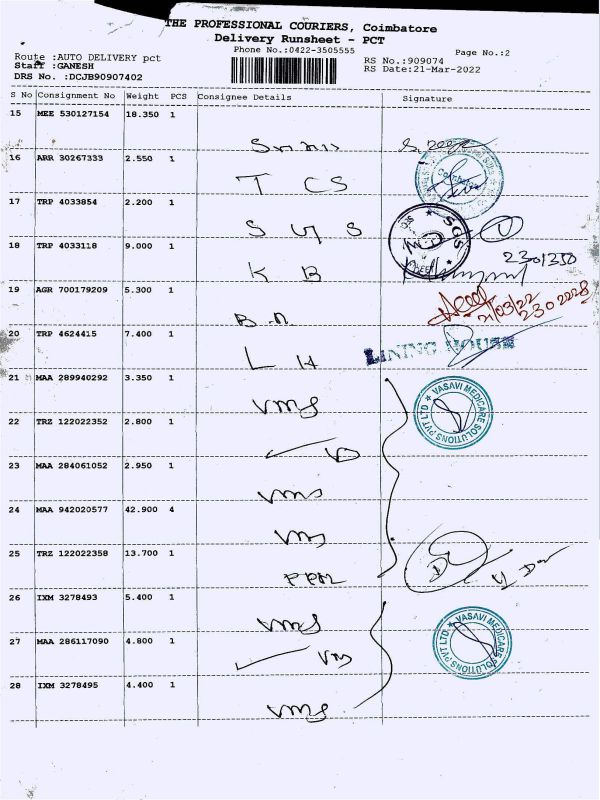 THE PROFESSIONAL COURIERS, Coimbatore
Delivery Runsheet - PCT
Phone No.:0422-3505555
Page No.:2
Route :AUTO DELIVERY pct
RS No.:909074
Staff :GANESH
RS Date:21-Mar-2022
DRS No. :DCJB90907402
S No Consignment No Weight PCS Consignee Details Signature
15 MEE 530127154 18.350 1
16 ARR 30267333 2.550 1
T CS
17 TRP 4033854 2.200 1
SGS
18 TRP 4033118 9.000 1
K B
2301350
19 AGR 700179209 5.300 1
21/03/22
20 TRP 4624415 7.400 1
L H
LINING HOUSE
21 MAA 289940292 3.350 1
VMS
VASAVI MEDICARE SOLUTIONS PVT LTD
22 TRZ 122022352 2.800 1
23 MAA 284061052 2.950 1
VMS
24 MAA 942020577 42.900 4
VMS
25 TRZ 122022358 13.700 1
26 IXM 3278493 5.400 1
VMS
27 MAA 286117090 4.800 1
VMS
VASAVI MEDICARE SOLUTIONS PVT LTD
28 IXM 3278495 4.400 1
VMS